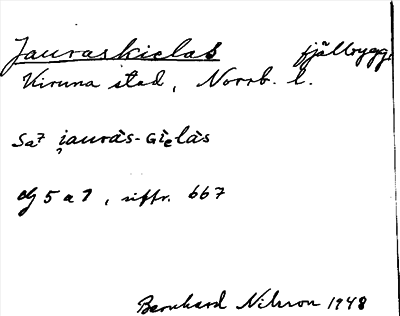 Jauraskielas fjällrygg.
Kiruna stad, Norrb. l.
Sa7 i̯auràs-Giելàs
dg 5 a 1, siffr. 667
Bernhard Nilsson 1948